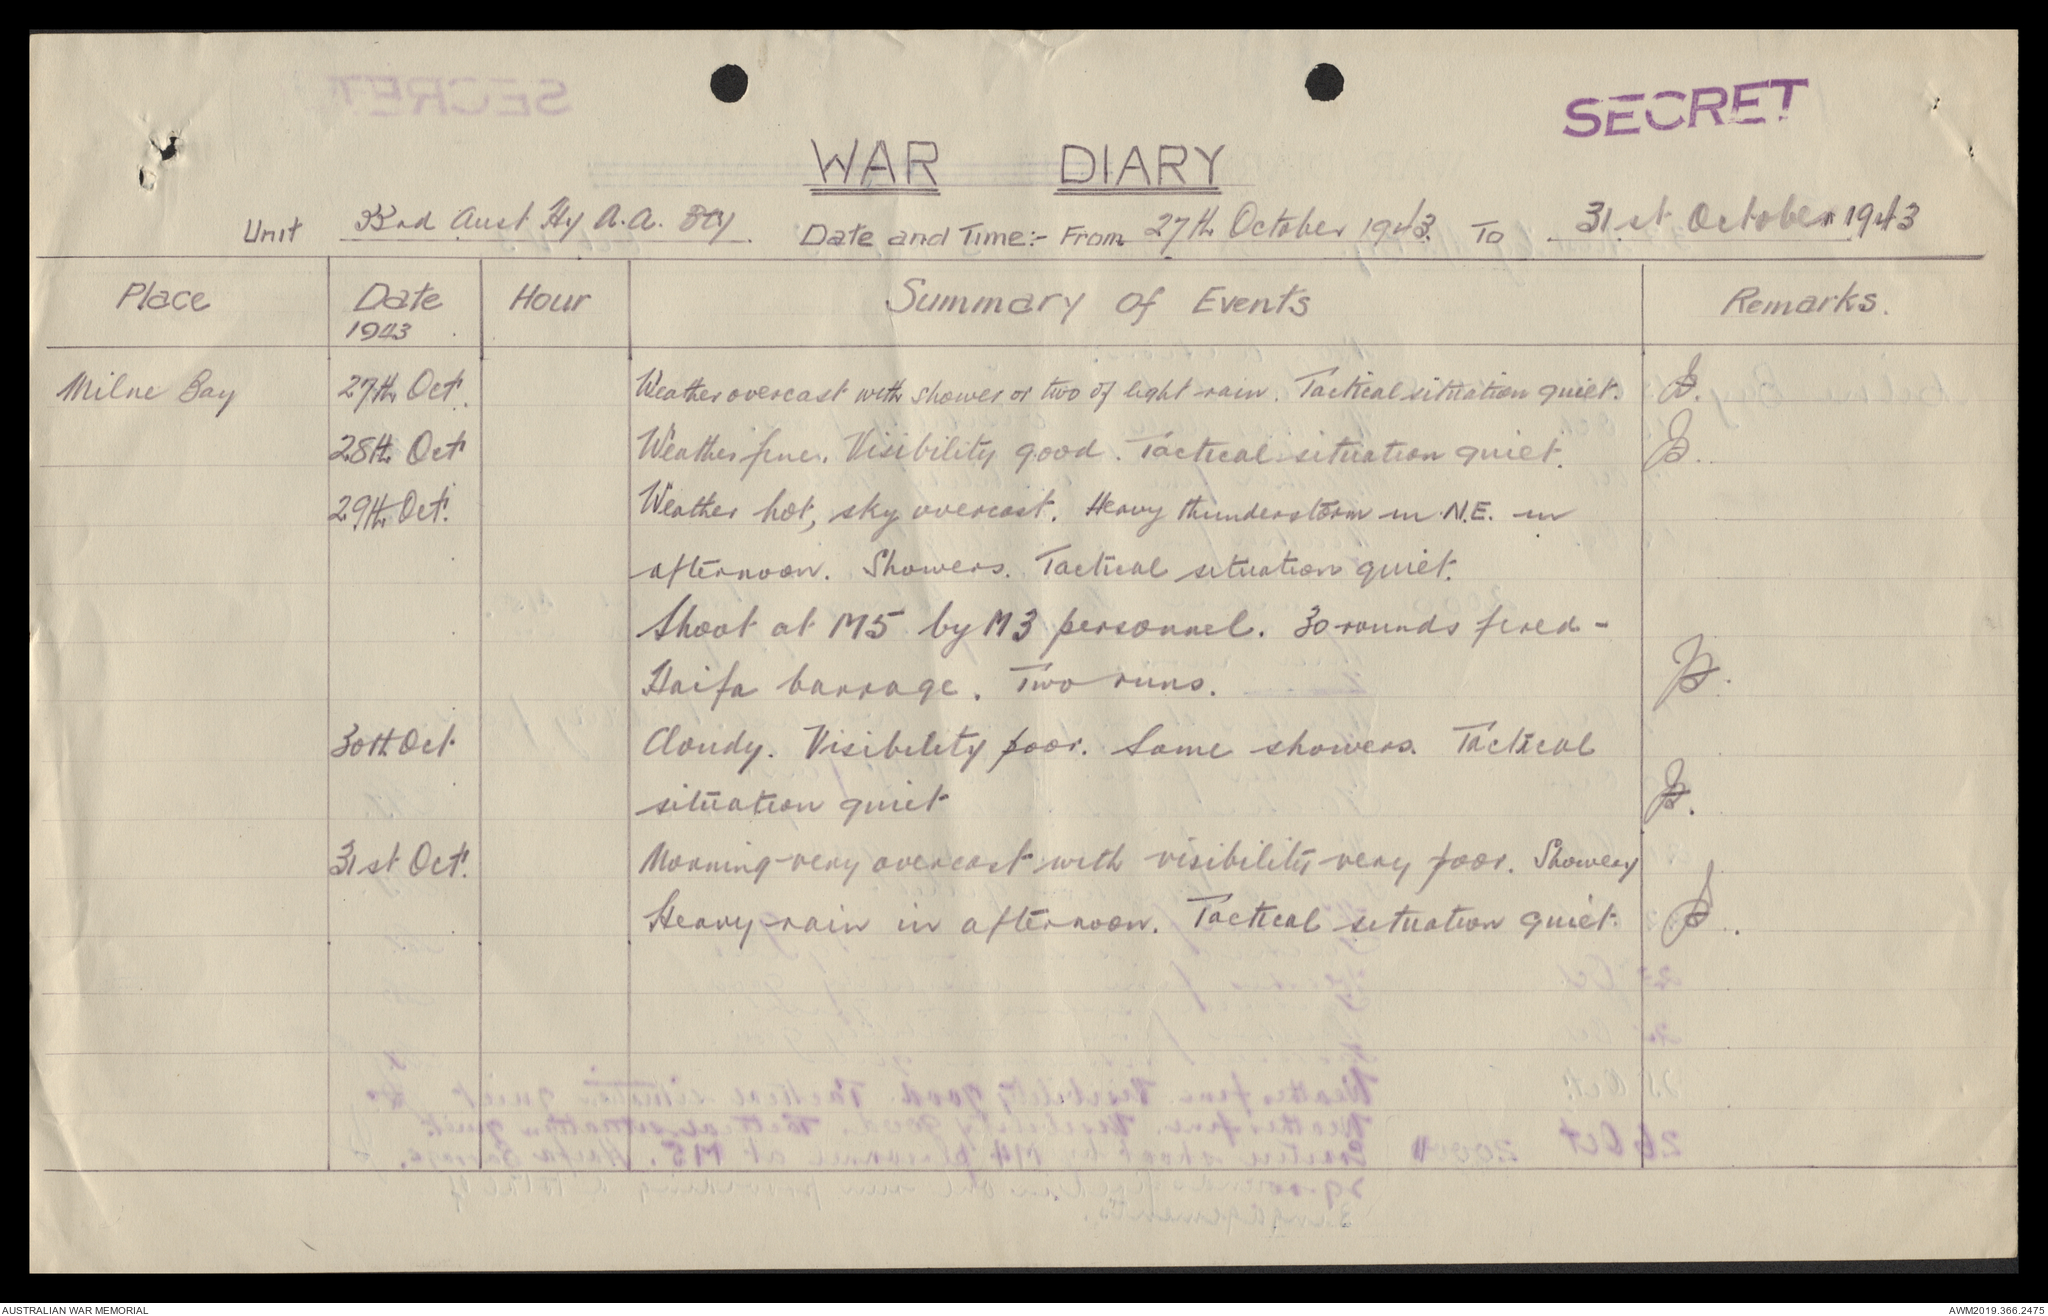 SECRET
WAR DIARY
Unit 33rd Aust Hy A.A. Bty Date and Time:- From 27th October 1943. To 31st October 1943
Place Date Hour Summary Of Events Remarks.
1943
Milne Bay 27th Oct. Weather overcast with shower or two of light rain. Tactical situation quiet.
28th Oct Weather fine. Visibility good. Tactical situation quiet.
29th Oct. Weather hot, sky overcast. Heavy thunderstorm in N.E. in
afternoon. Showers. Tactical situation quiet.
Shoot at M5 by M3 personnel. 30 rounds fired -
Haifa barrage. Two runs.
30th Oct Cloudy. Visibility poor. Some showers. Tactical
situation quiet
31st Oct. Morning very overcast with visibility very poor. Showery
Heavy rain in afternoon. Tactical situation quiet.
AUSTRALIAN WAR MEMORIAL AWM2019.366.2475